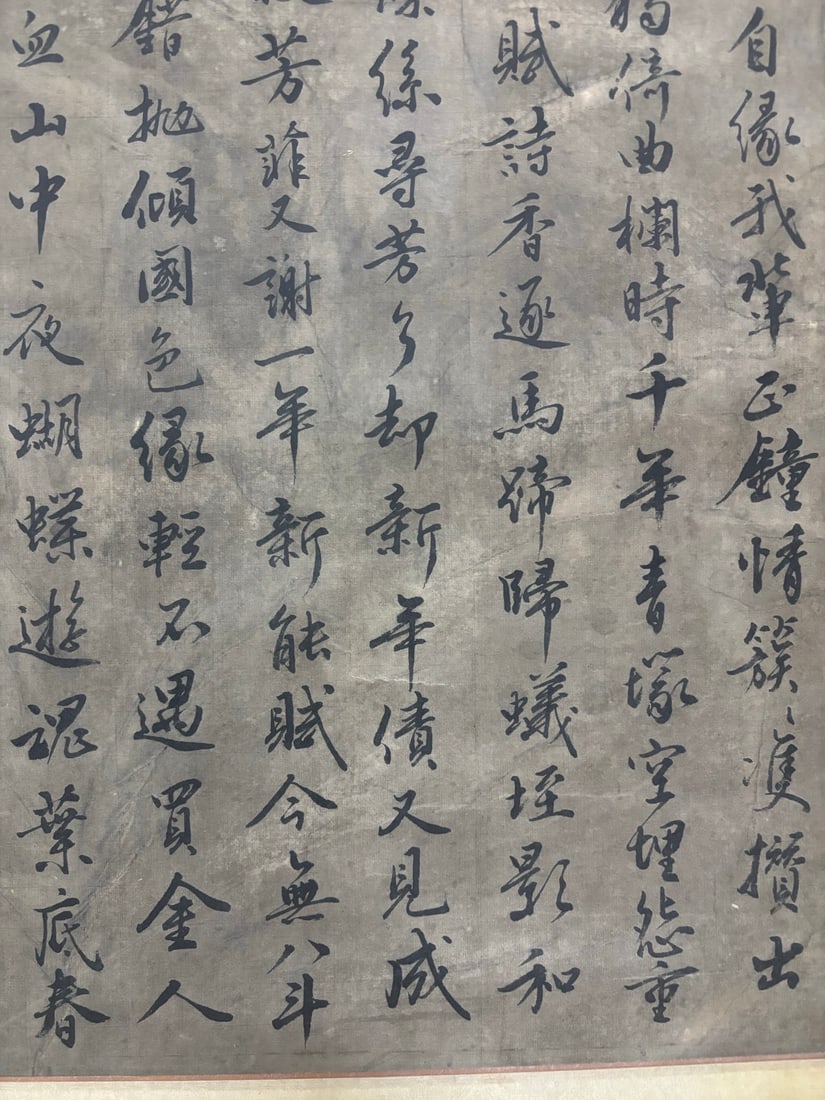 自緣我輩正鐘情簇々雙攢出
倚曲欄時千年青塚空埋怨重
賦詩香逐馬蹄歸蟻垤影和
絲尋芳了却新年債又見成
芳菲又謝一年新能賦今無八斗
錯拋傾國色緣輕不遇買金人
血山中夜蝴蝶遊魂葉底春